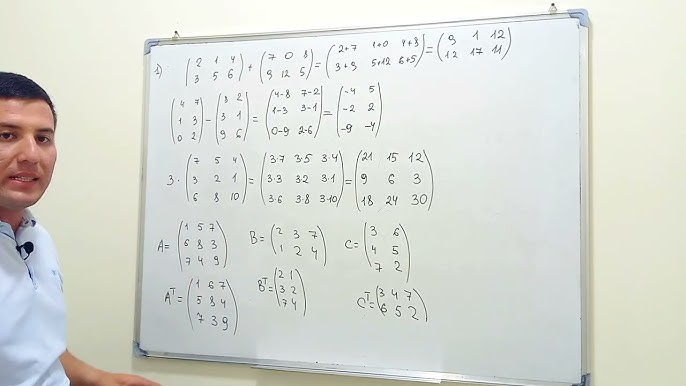 1) (2 1 4 / 3 5 6) + (7 0 8 / 9 12 5) = (2+7 1+0 4+8 / 3+9 5+12 6+5) = (9 1 12 / 12 17 11)
(4 7 / 1 3 / 0 2) - (8 2 / 3 1 / 9 6) = (4-8 7-2 / 1-3 3-1 / 0-9 2-6) = (-4 5 / -2 2 / -9 -4)
3 · (7 5 4 / 3 2 1 / 6 8 10) = (3·7 3·5 3·4 / 3·3 3·2 3·1 / 3·6 3·8 3·10) = (21 15 12 / 9 6 3 / 18 24 30)
A = (1 5 7 / 6 8 3 / 7 4 9) B = (2 3 7 / 1 2 4) C = (3 6 / 4 5 / 7 2)
Aᵀ = (1 6 7 / 5 8 4 / 7 3 9) Bᵀ = (2 1 / 3 2 / 7 4) Cᵀ = (3 4 7 / 6 5 2)